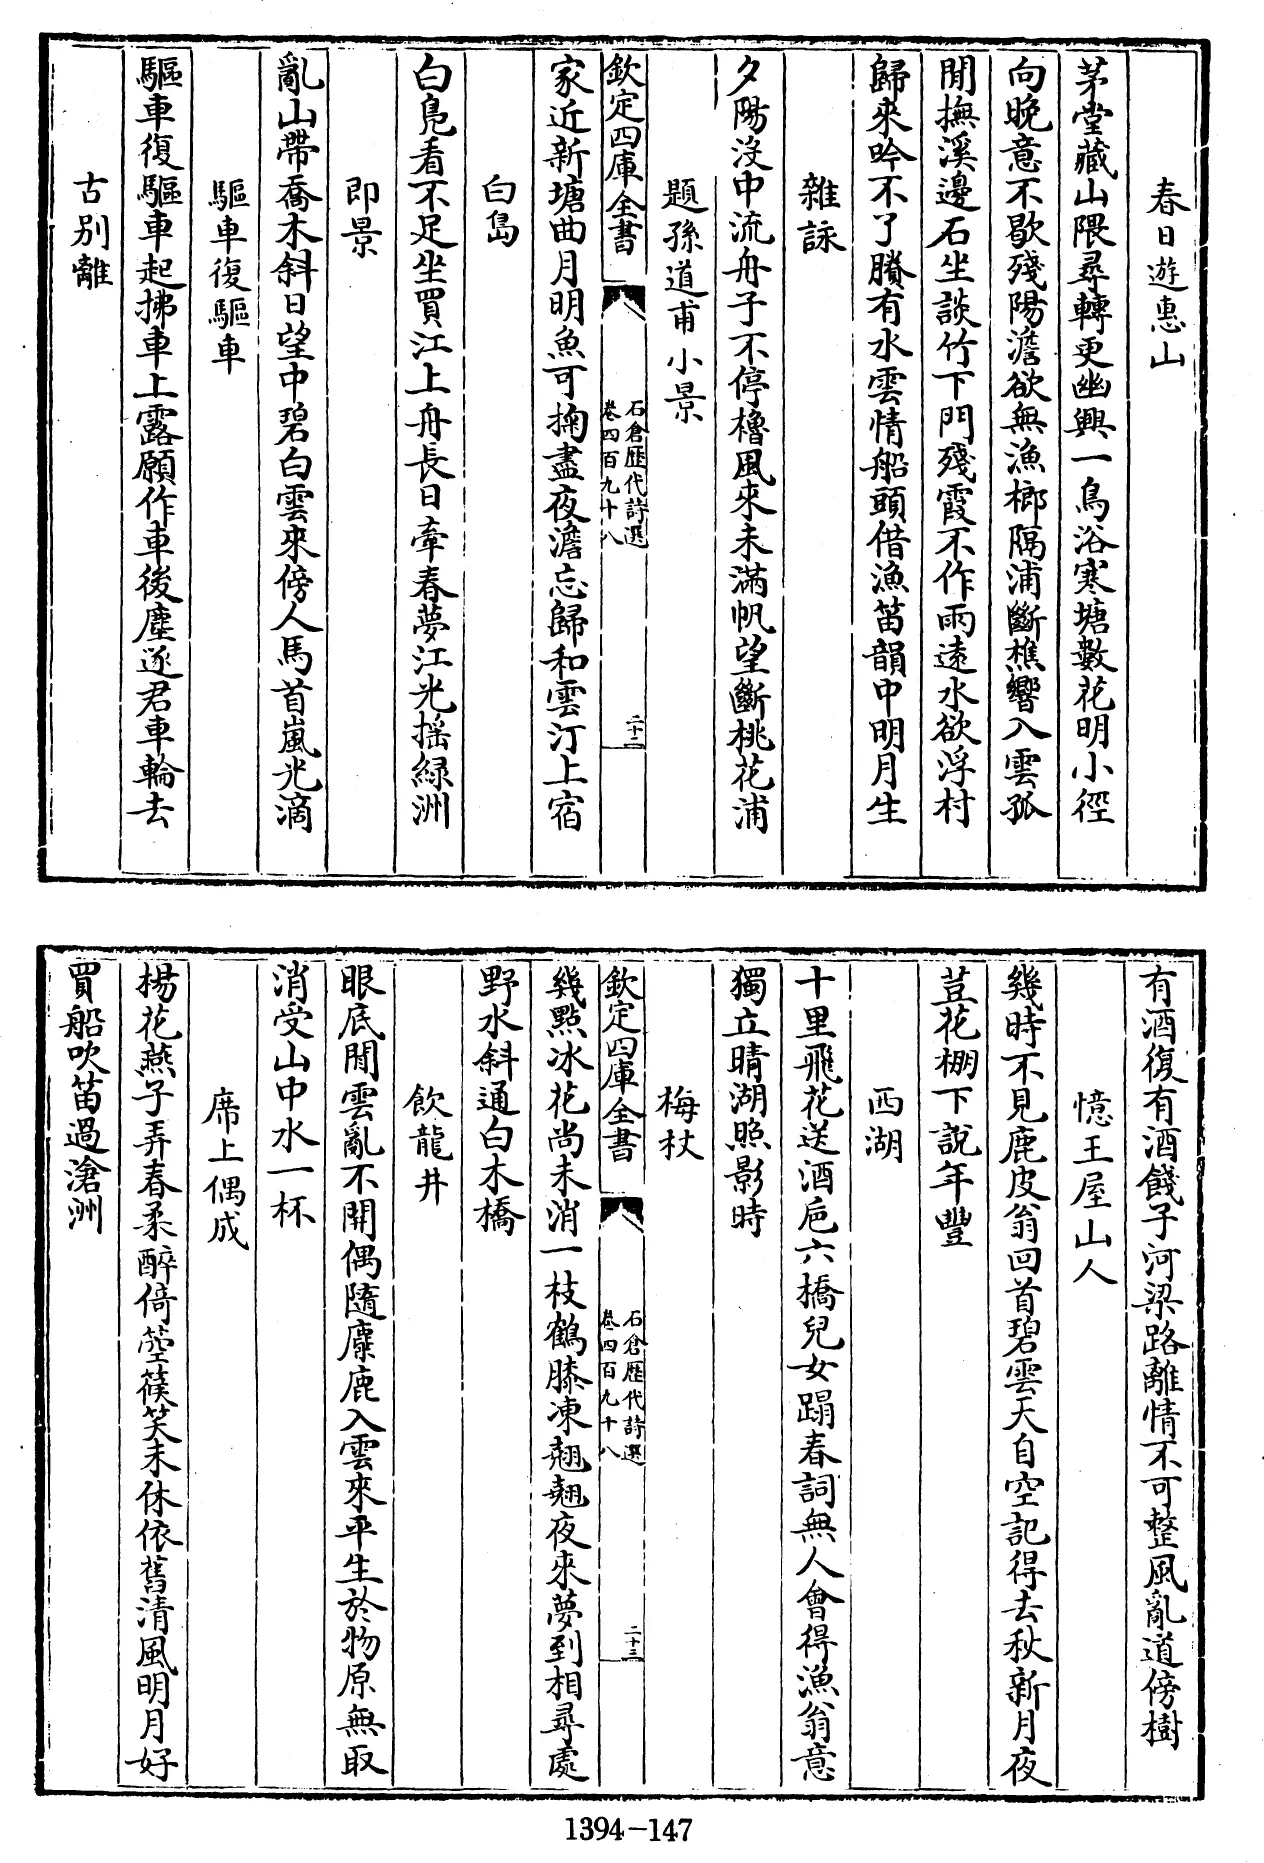 春日遊惠山
茅堂藏山隈尋轉更幽興一鳥浴寒塘數花明小徑
向晚意不歇殘陽澹欲無漁榔隔浦斷樵響入雲孤
閒撫溪邊石坐談竹下門殘霞不作雨遠水欲浮村
歸來吟不了賸有水雲情船頭借漁笛韻中明月生
雜詠
夕陽沒中流舟子不停櫓風來未滿帆望斷桃花浦
題孫道甫小景
欽定四庫全書
石倉歷代詩選
卷四百九十八
二十二
家近新塘曲月明魚可掬盡夜澹忘歸和雲汀上宿
白鳥
白鳧看不足坐買江上舟長日牽春夢江光搖綠洲
即景
亂山帶喬木斜日望中碧白雲來傍人馬首嵐光滴
驅車復驅車
驅車復驅車起拂車上露願作車後塵逐君車輪去
古別離
有酒復有酒餞子河梁路離情不可整風亂道傍樹
憶王屋山人
幾時不見鹿皮翁回首碧雲天自空記得去秋新月夜
荳花棚下說年豐
西湖
十里飛花送酒巵六橋兒女蹋春詞無人會得漁翁意
獨立晴湖照影時
梅杖
欽定四庫全書
石倉歷代詩選
卷四百九十八
二十三
幾點冰花尚未消一枝鶴膝凍翹翹夜來夢到相尋處
野水斜通白木橋
飲龍井
眼底閒雲亂不開偶隨麋鹿入雲來平生於物原無取
消受山中水一杯
席上偶成
楊花燕子弄春柔醉倚箜篌笑未休依舊清風明月好
買船吹笛過滄洲
1394-147